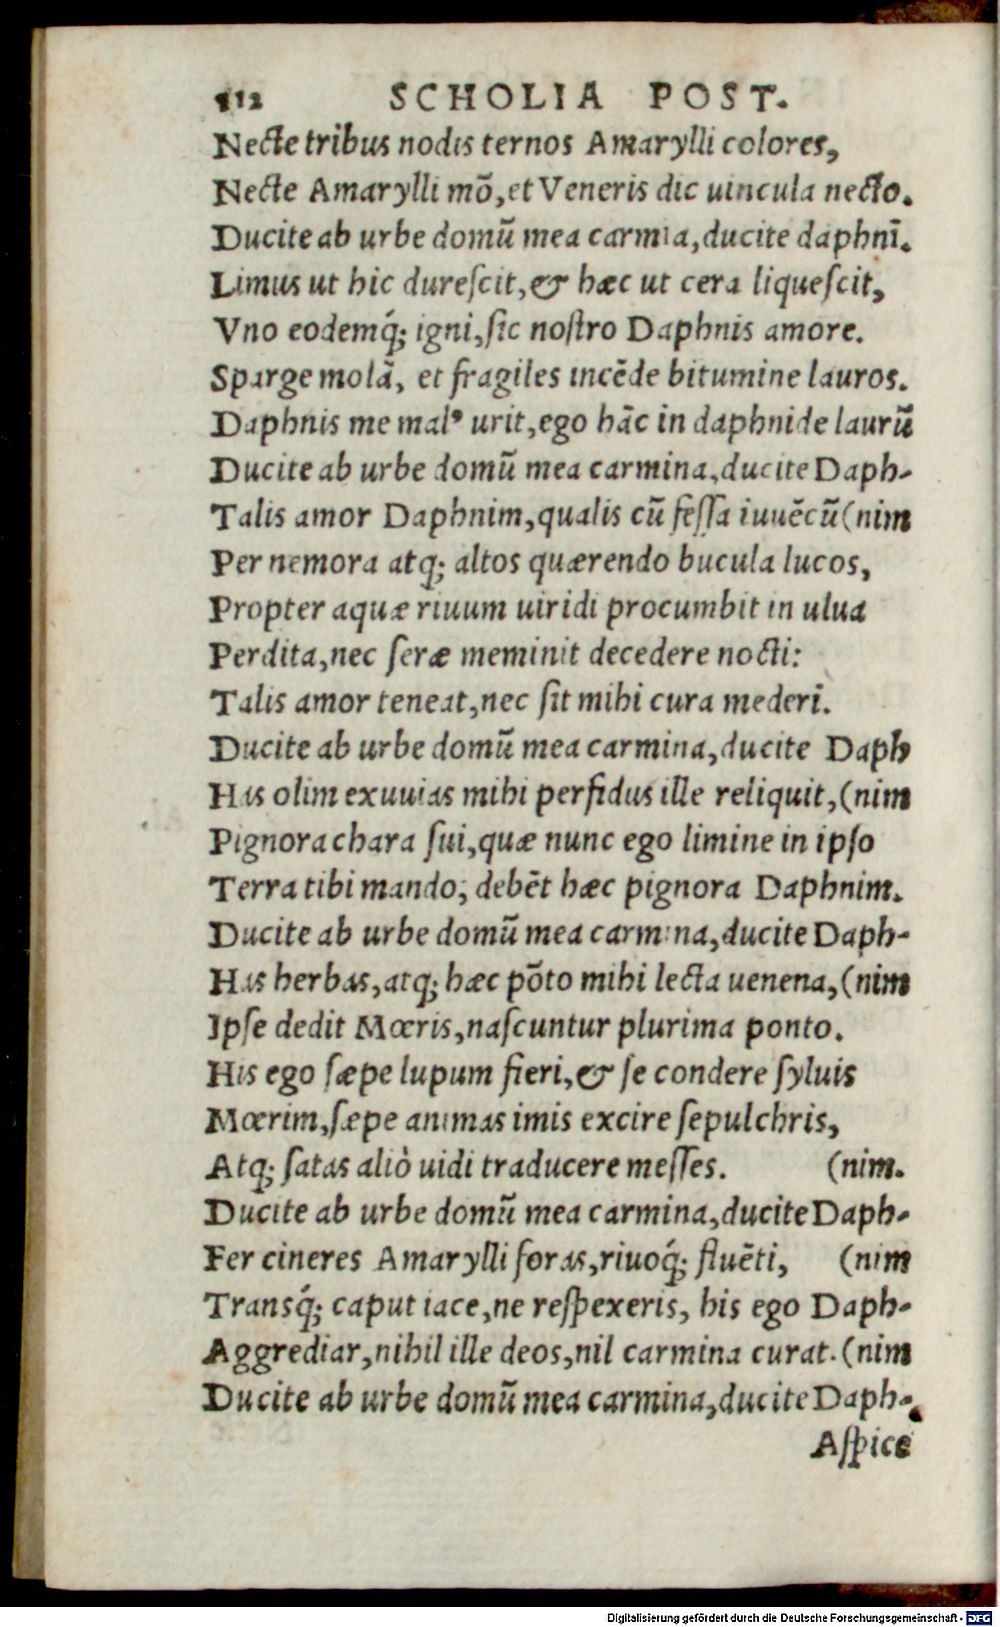 112 SCHOLIA POST.
Necte tribus nodis ternos Amarylli colores,
Necte Amarylli mō, et Veneris dic uincula necto.
Ducite ab urbe domū mea carmia, ducite daphnī.
Limus ut hic dureſcit, & hæc ut cera liqueſcit,
Vno eodemq́; igni, ſic noſtro Daphnis amore.
Sparge molā, et fragiles incēde bitumine lauros.
Daphnis me malꝰ urit, ego hāc in daphnide laurū
Ducite ab urbe domū mea carmina, ducite Daph-
Talis amor Daphnim, qualis cū feſſa iuuēcū (nim
Per nemora atq; altos quærendo bucula lucos,
Propter aquæ riuum uiridi procumbit in ulua
Perdita, nec ſeræ meminit decedere nocti:
Talis amor teneat, nec ſit mihi cura mederi.
Ducite ab urbe domū mea carmina, ducite Daph
Has olim exuuias mihi perfidus ille reliquit, (nim
Pignora chara ſui, quæ nunc ego limine in ipſo
Terra tibi mando; debēt hæc pignora Daphnim.
Ducite ab urbe domū mea carmina, ducite Daph-
Has herbas, atq; hæc pōto mihi lecta uenena, (nim
Ipſe dedit Mœris, naſcuntur plurima ponto.
His ego ſæpe lupum fieri, & ſe condere ſyluis
Mœrim, ſæpe animas imis excire ſepulchris,
Atq; ſatas aliò uidi traducere meſſes. (nim.
Ducite ab urbe domū mea carmina, ducite Daph-
Fer cineres Amarylli foras, riuoq́; fluēti, (nim
Transq́; caput iace, ne reſpexeris, his ego Daph-
Aggrediar, nihil ille deos, nil carmina curat. (nim
Ducite ab urbe domū mea carmina, ducite Daph-
Aſpice
Digitalisierung gefördert durch die Deutsche Forschungsgemeinschaft - DFG